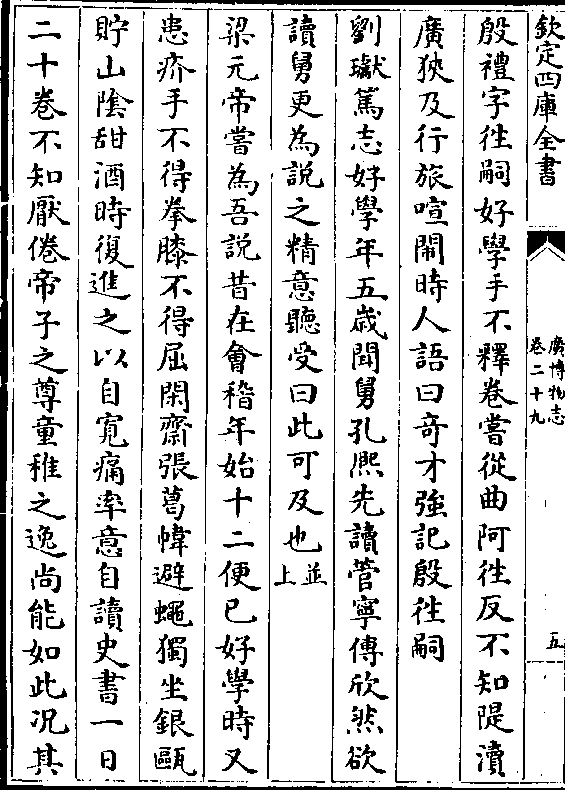 欽定四庫全書
廣博物志
卷二十九
五
殷禮字往嗣好學手不釋卷嘗從曲阿往反不知隄瀆
廣狹及行旅喧閙時人語曰奇才強記殷往嗣
劉瓛篤志好學年五歳聞舅孔熈先讀管寧傳欣然欲
讀舅更為說之精意聽受曰此可及也並上
梁元帝嘗為吾說昔在會稽年始十二便已好學時又
患疥手不得拳膝不得屈閑齋張葛幃避蠅獨坐銀甌
貯山陰甜酒時復進之以自寛痛率意自讀史書一日
二十卷不知厭倦帝子之尊童稚之逸尚能如此况其